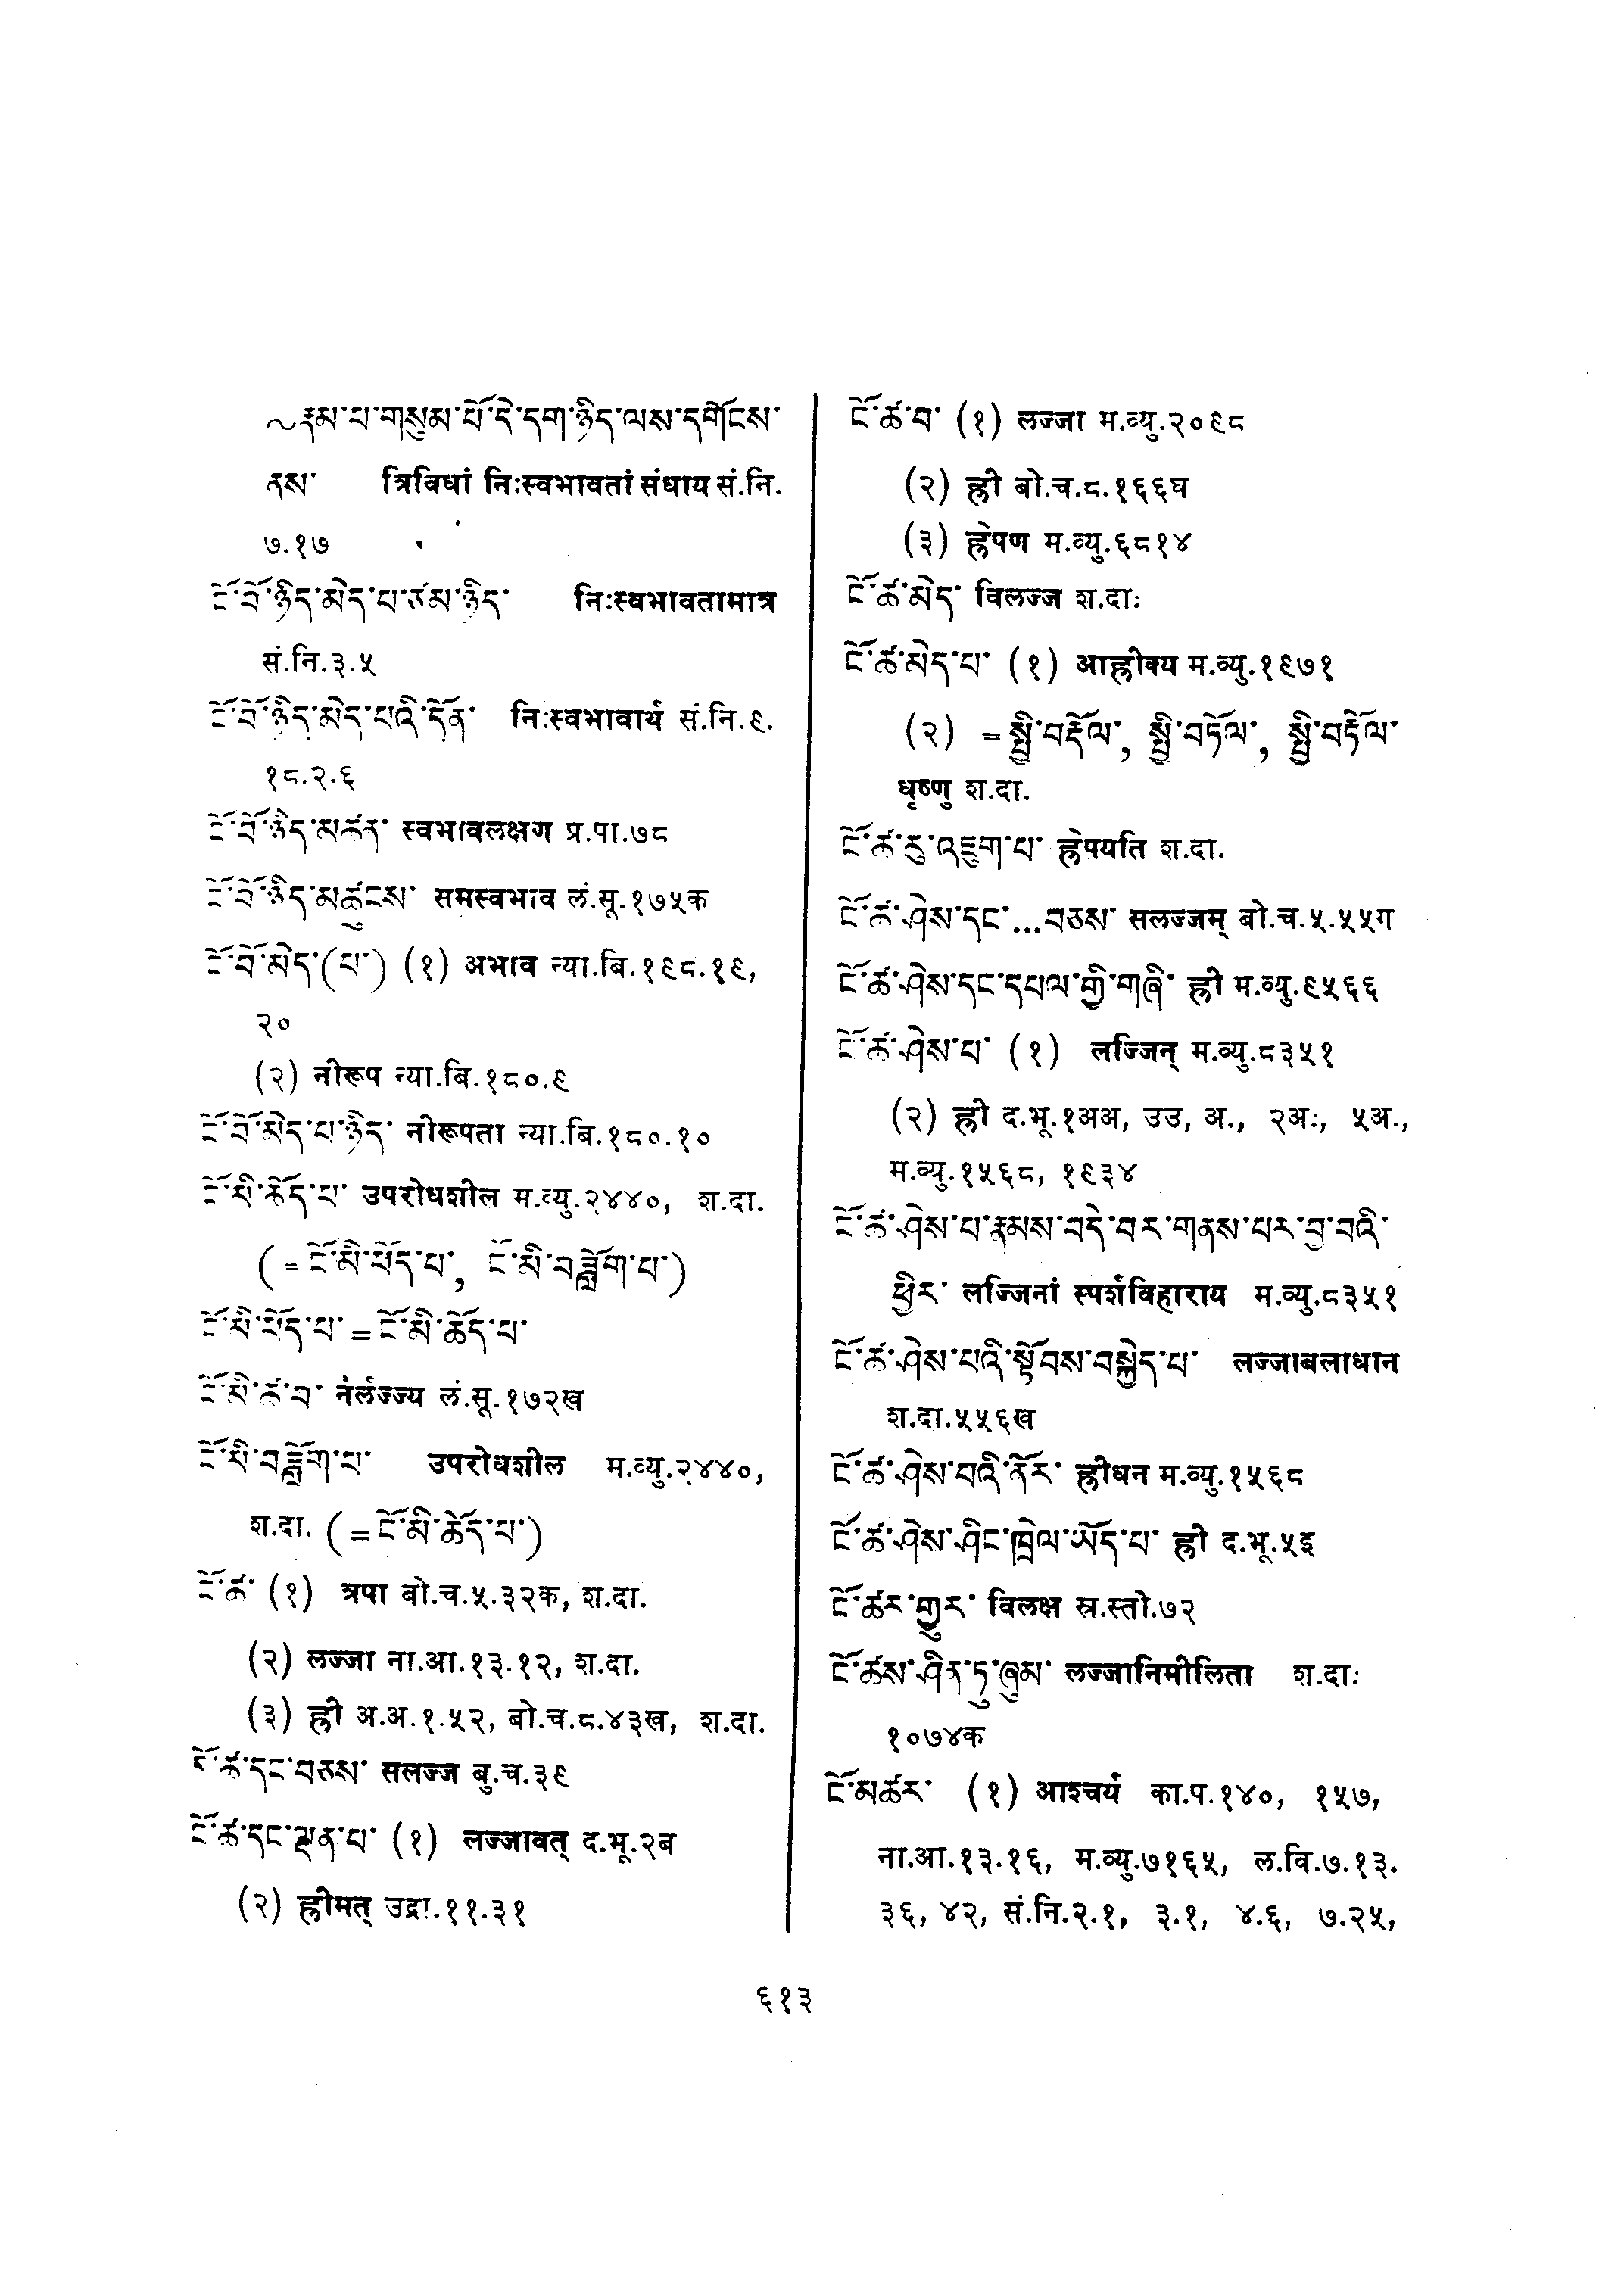 ~རྣམ་པ་གསུམ་པོ་དེ་དག་ཉིད་ལས་དགོངས་
ནས་ त्रिविधां निःस्वभावतां संधाय सं.नि.
७.१७
ངོ་བོ་ཉིད་མེད་པ་ཙམ་ཉིད་ निःस्वभावतामात्र
सं.नि.३.५
ངོ་བོ་ཉིད་མེད་པའི་དོན་ निःस्वभावार्थ सं.नि.९.
१८.२.६
ངོ་བོ་ཉིད་མཚན་ स्वभावलक्षण प्र.पा.७८
ངོ་བོ་ཉིད་མཚུངས་ समस्वभाव लं.सू.१७५क
ངོ་བོ་མེད་(པ་) (१) अभाव न्या.बि.१९८.१९,
२०
(२) नीरूप न्या.बि.१८०.९
ངོ་བོ་མེད་པ་ཉིད་ नीरूपता न्या.बि.१८०.१०
ངོ་མི་ཆོད་པ་ उपरोधशील म.व्यु.२४४०, श.दा.
(=ངོ་མི་ཕོད་པ་, ངོ་མི་བཟློག་པ་)
ངོ་མི་ཕོད་པ་=ངོ་མི་ཆོད་པ་
ངོ་མི་ཚ་བ་ नर्लज्ज्य लं.सू.१७२ख
ངོ་མི་བཟློག་པ་ उपरोधशील म.व्यु.२४४०,
श.दा. (=ངོ་མི་ཆོད་པ་)
ངོ་ཚ་ (१) त्रपा बो.च.५.३२क, श.दा.
(२) लज्जा ना.आ.१३.१२, श.दा.
(३) ह्री अ.अ.१.५२, बो.च.८.४३ख, श.दा.
ངོ་ཚ་དང་བཅས་ सलज्ज बु.च.३९
ངོ་ཚ་དང་ལྡན་པ་ (१) लज्जावत् द.भू.२ब
(२) ह्रीमत् उद्रा.११.३१
ངོ་ཚ་བ་ (१) लज्जा म.व्यु.२०९८
(२) ह्री बो.च.८.१६६घ
(३) ह्रेपण म.व्यु.६८१४
ངོ་ཚ་མེད་ विलज्ज श.दाः
ངོ་ཚ་མེད་པ་ (१) आह्रीक्य म.व्यु.१९७१
(२) =སྤྱི་བརྡོལ་, སྤྱི་བཏོལ་, སྤྱི་བརྟོལ་
धृष्णु श.दा.
ངོ་ཚ་རུ་འཇུག་པ་ ह्रेपयति श.दा.
ངོ་ཚ་ཤེས་དང་...བཅས་ सलज्जम् बो.च.५.५५ग
ངོ་ཚ་ཤེས་དང་དཔལ་གྱི་གཞི་ ह्री म.व्यु.९५६६
ངོ་ཚ་ཤེས་པ་ (१) लज्जिन् म.व्यु.८३५१
(२) ह्री द.भू.१अअ, उउ, अ., २अः, ५अ.,
म.व्यु.१५६८, १९३४
ངོ་ཚ་ཤེས་པ་རྣམས་བདེ་བར་གནས་པར་བྱ་བའི་
ཕྱིར་ लज्जिनां स्पर्शविहाराय म.व्यु.८३५१
ངོ་ཚ་ཤེས་པའི་སྟོབས་བསྐྱེད་པ་ लज्जाबलाधान
श.दा.५५६ख
ངོ་ཚ་ཤེས་པའི་ནོར་ ह्रीधन म.व्यु.१५६८
ངོ་ཚ་ཤེས་ཤིང་ཁྲེལ་ཡོད་པ་ ह्री द.भू.५इ
ངོ་ཚར་གྱུར་ विलक्ष स्र.स्तो.७२
ངོ་ཚས་ཤིན་ཏུ་ཞུམ་ लज्जानिमीलिता श.दाः
१०७४क
ངོ་མཚར་ (१) आश्चर्य का.प.१४०, १५७,
ना.आ.१३.१६, म.व्यु.७१६५, ल.वि.७.१३.
३६, ४२, सं.नि.२.१, ३.१, ४.६, ७.२५,
६१३